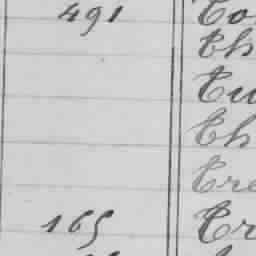 491 Co
Ch
Cu
Ch
Cre
165 Cr